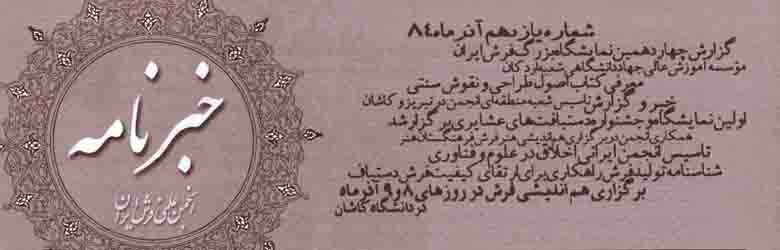 شماره یازدهم آذرماه ۸۴
گزارش چهاردهمین نمایشگاه بزرگ فرش ایران
موسسه آموزش عالی جهاددانشگاهی شعبه اردکان
معرفی کتاب اصول طراحی و نقوش سنتی
خبر و گزارش تاسیس شعبه منطقه‌ای انجمن در تبریز و کاشان
اولین نمایشگاه و جشنواره دستبافت‌های عشایری برگزار شد
همکاری انجمن در برگزاری هم‌اندیشی هنر فرش فرهنگستان هنر
تاسیس انجمن ایرانی اخلاق در علوم و فناوری
شناسنامه تولید فرش راهکاری برای ارتقای کیفیت فرش دستباف
برگزاری هم اندیشی فرش در روزهای ۸ و ۹ آذرماه
در دانشگاه کاشان
خبرنامه
انجمن علمی فرش ایران